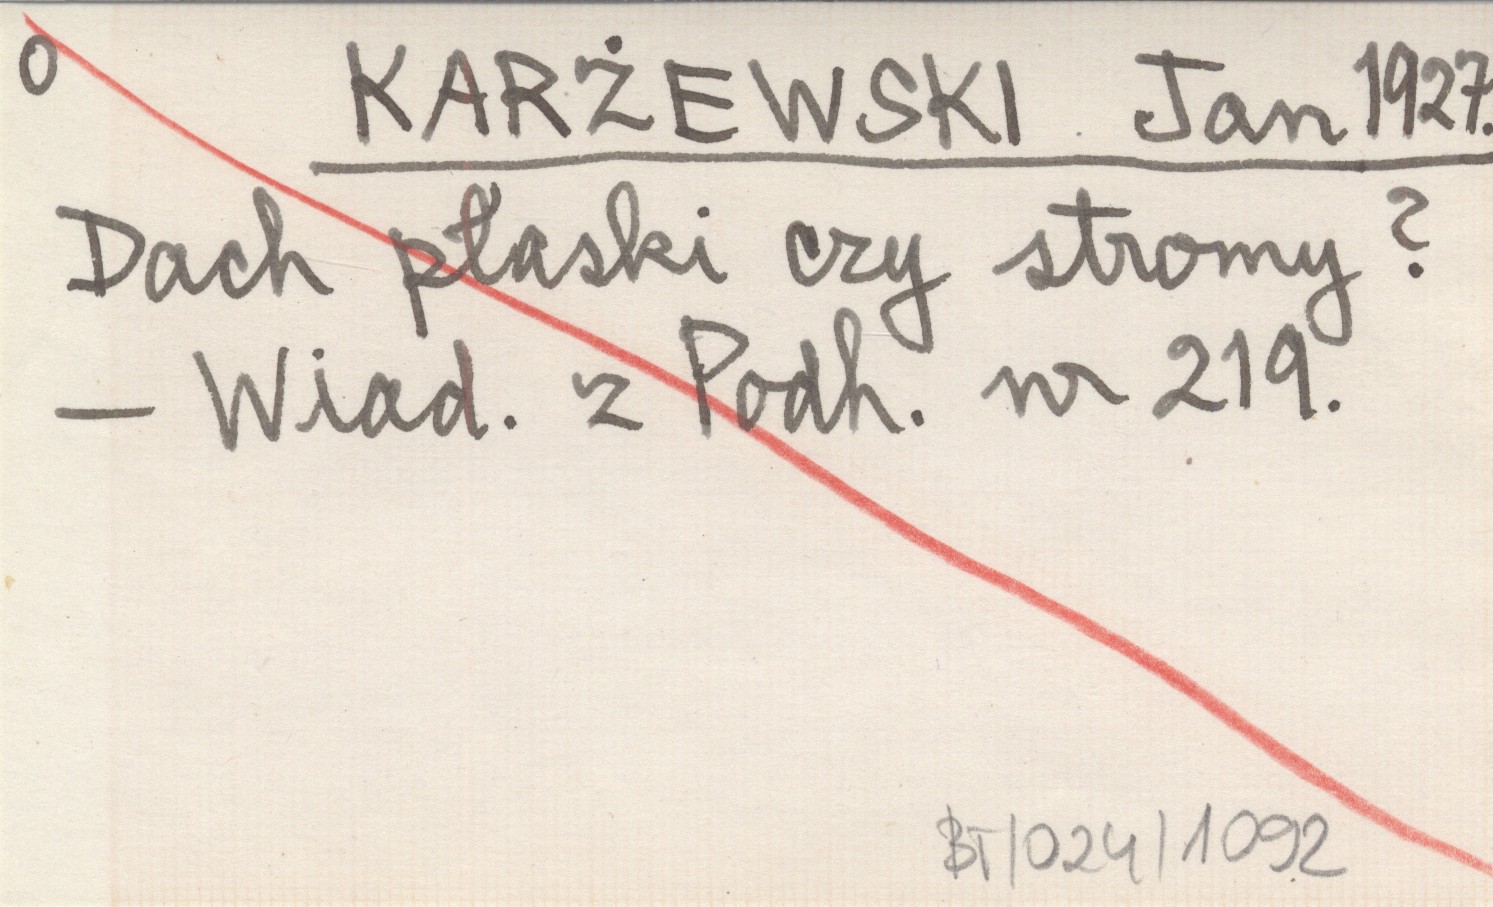 O KARŻEWSKI Jan 1927.
Dach płaski czy stromy?
— Wiad. z Podh. nr 219.
BT/024/1092